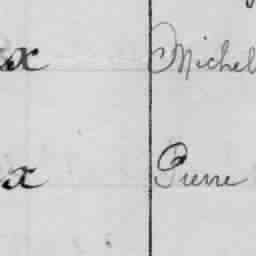 x Michel
x Pierre